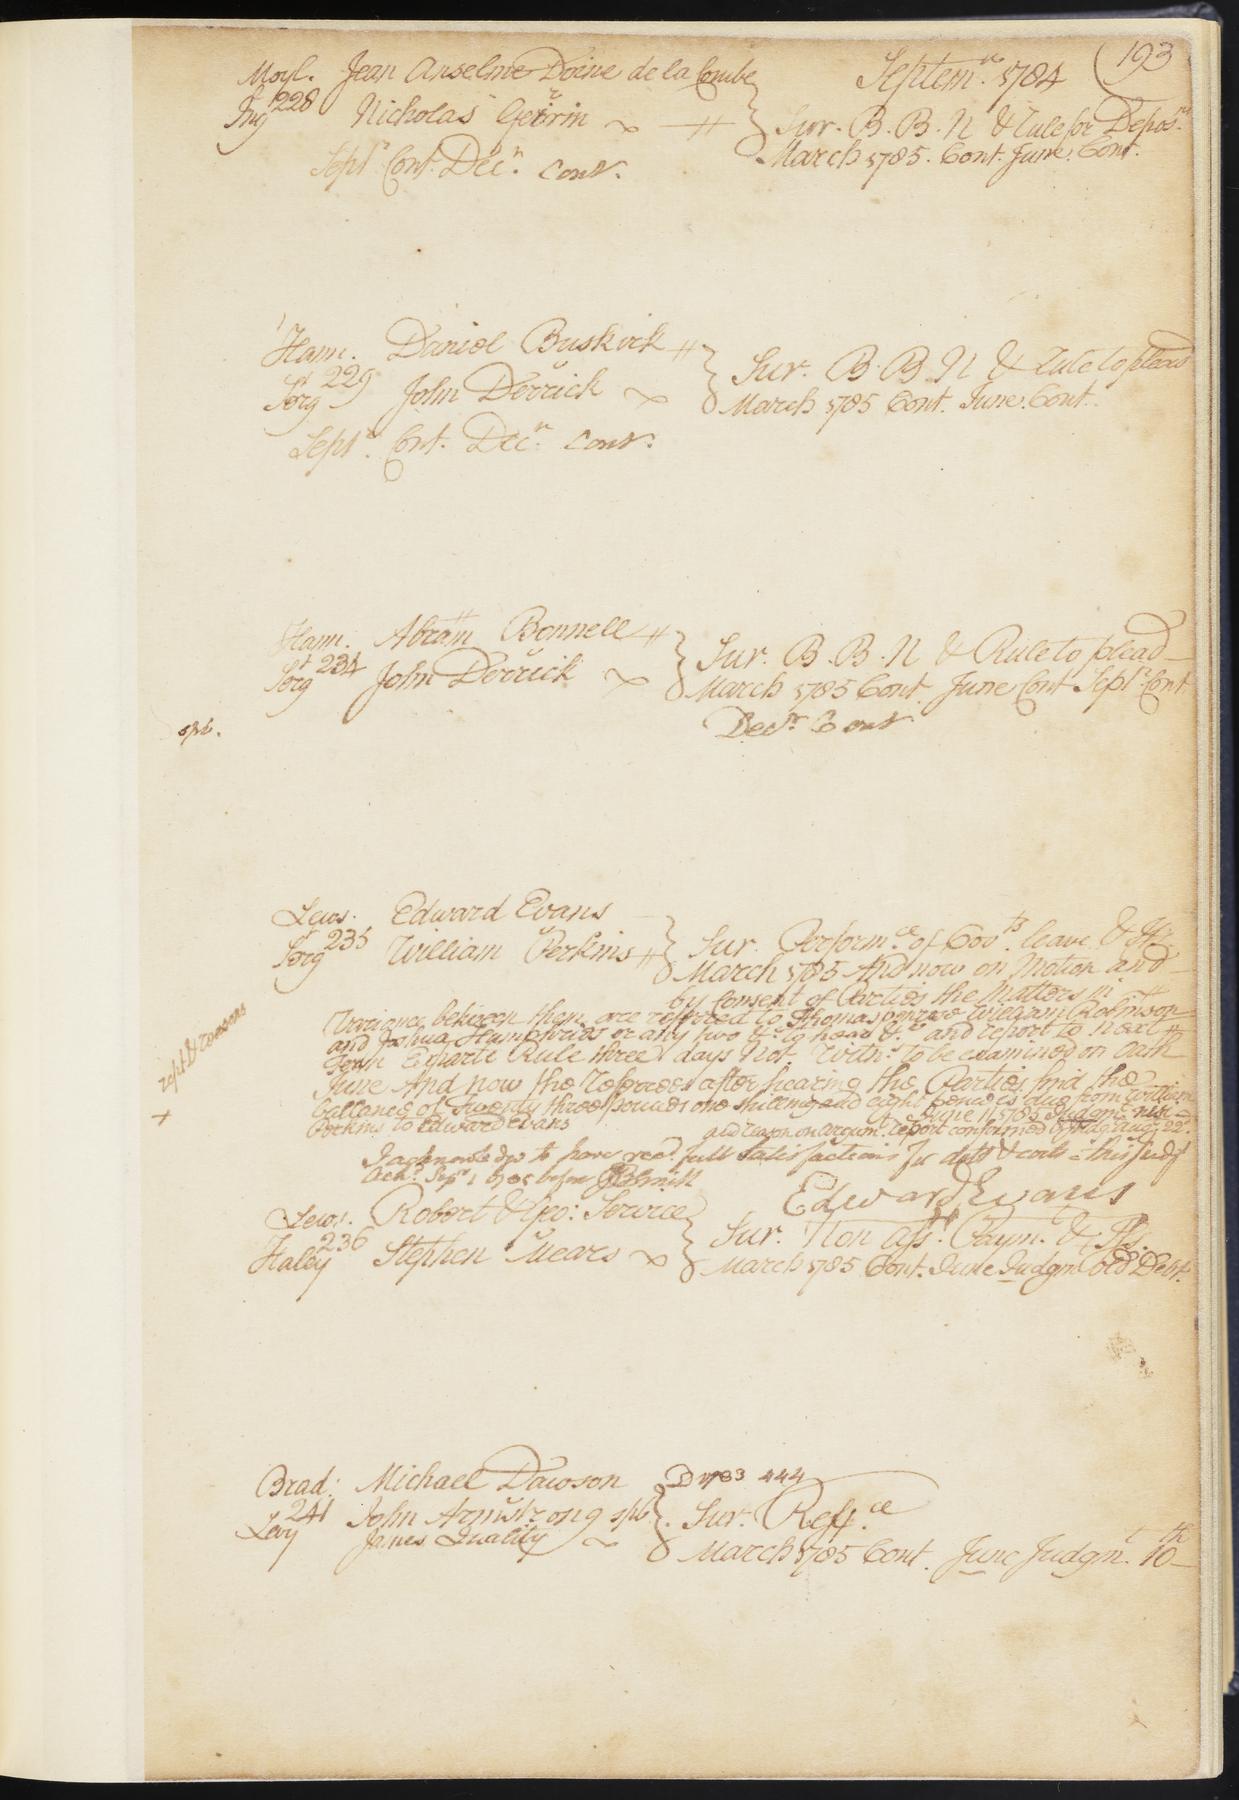 Septemr. 1784 (193
Moyl. Jean Anselme Doine de la Combe
Ing 228 Nicholas Gerrin
Sur. B. B. N & Rule for Depos.ns
March 1785. Cont. June. Cont.
Septr. Cont. Decr. Cont.
Ham. Daniel Buskirk
Sergt 229 John Derrick
Sur. B. B. N & Rule to plead
March 1785 Cont. June. Cont.
Septr. Cont. Decr. Cont.
Ham. Abram Bonnell
Sergt 234 John Derrick
Sur. B. B. N & Rule to plead
March 1785 Cont. June Cont Septr. Cont
Decr. Cont
spb.
Lews. Edward Evans
Sergt 235 William Perkins
Sur. Performce. of Covts. leave &
March 1785 And now on Motion and
by Consent of Parties the Matters in
Variance between them are referred to Thomas William Robinson
and Joshua Humphries or any two &c. to hear &c. and report to next
Term Exparte Rule three days Not. Witns. to be examined on Oath
June And now the Referees after hearing the Parties find the
ballance of Twenty three pounds one shilling and eight pence is due from William
Perkins to Edward Evans June 11 1785 Judgmt. nisi
and reason on argumt. report confirmed Augt. 22d.
rept & reasons
+
I acknowledge to have recd. full satisfaction for debt & costs in this Judgt
Ackd. Sepr. 1 1785 before
Edward Evans
Lews. Robert & Geo: Service
Haley 236 Stephen Mears
Sur. Non Asst. Paym. &
March 1785 Cont. June Judgmt. Debt.
Brad: Michael Dawson D 1783 444
Levy 241 John Armstrong spb.
James Quality
Sur. Reffce
March 1785 Cont. June Judgmt. 10th